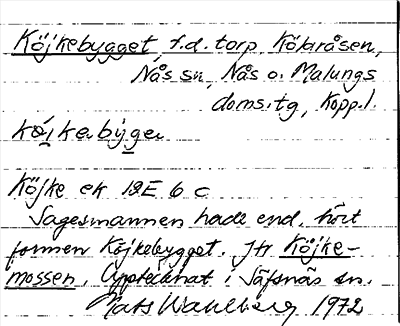 Köjkebygget, f.d. torp, Kölaråsen,
Nås sn, Nås o. Malungs
doms.tg, Kopp.l.
Köjke ek 12E 6 c
Sagesmannen hade end. hört
formen Köjkebygget. Jfr Köjke-
mossen. Upptecknat i Säfsnäs sn.
Mats Wahlberg 1972